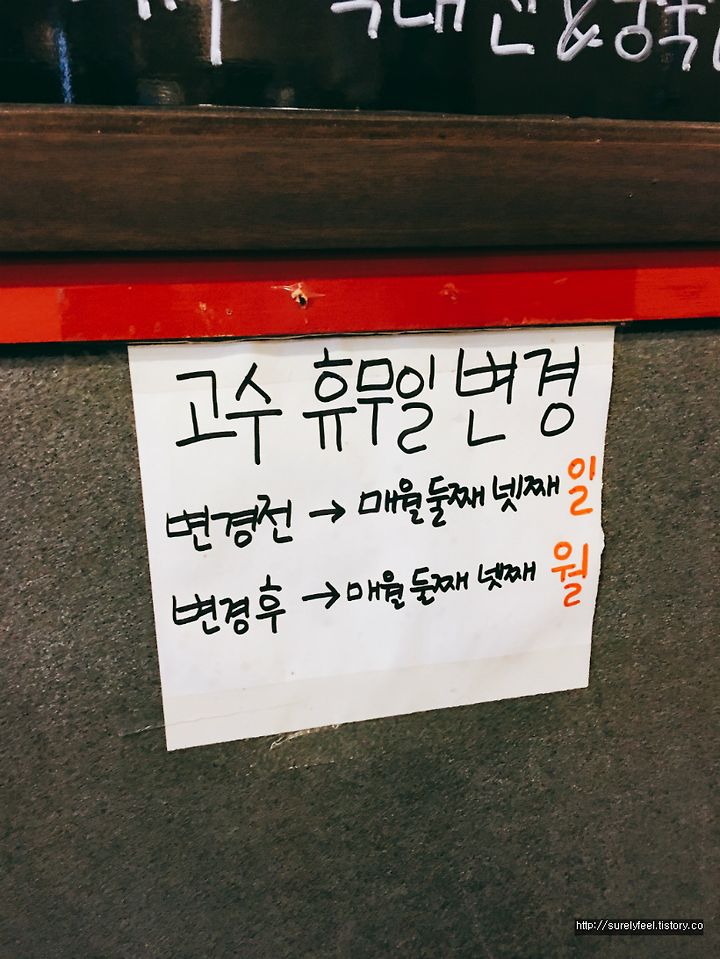 고수 휴무일 변경
변경전 → 매월둘째 넷째 일
변경후 → 매월 둘째 넷째 월
http://surelyfeel.tistory.co